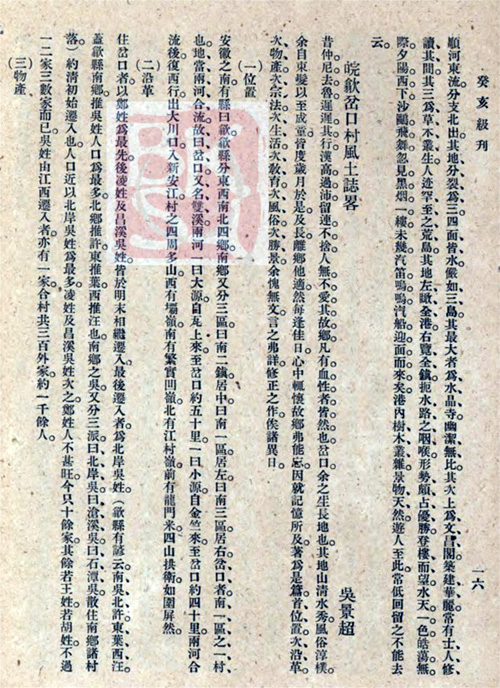 癸亥級刊
一六
順河東流分支北出其地分裂為三四面皆水儼如三島其最大者為水晶寺幽潔無比其次上為文昌閣築建華麗常有士人修
讀其間其三為草不叢生人迹罕至之荒島其地左瞰全港右覽全鎮扼水路之咽喉形勢頗占優勝登樓而望水天一色皓蕩無
際夕陽西下沙鷗飛舞忽見黑烟一縷未幾汽笛嗚嗚汽船迎面而來矣港內樹木叢雜景物天然遊人至此常低回留之不能去
云。
皖歙岔口村風土誌畧
吳景超
昔仲尼去魯遲遲其行漢高過沛留連不捨人無不愛其故鄉凡有血性者皆然也岔口余之生長地也其地山清水秀風俗淳樸
余自束髮以至成童皆度歲月於是及長離鄉他適然每逢佳日心中輒懷故鄉弗能忘因就記憶所及著為是篇首位置次沿革
次物產次宗法次生活次教育次風俗次勝景余愧無文言之弗詳修正之作俟諸異日。
(一)位置
安徽之南有縣曰歙歙縣分東西南北四鄉南鄉又分三區曰南二鎮居中曰南一區居左曰南三區居右岔口者南一區之一村
也地當兩河合流故曰岔口又名雙溪兩河一曰大源自危上來至岔口約五十里一曰小源自金竺來至岔口約四十里兩河合
流後復西行出大川口入新安江村之四周多山西有壩嶺南有繁實凹嶺北有江村嶺前有龍門米四山拱衛如圍屏然。
(二)沿革
住岔口者以鄭姓為最先後凌姓及昌溪吳姓皆於明末相繼遷入最後遷入者為北岸吳姓(歙縣有諺云南吳北許東葉西汪
蓋歙縣南鄉推吳姓人口為最多北鄉推許東推葉西推汪也南鄉之吳又分三派曰北岸吳曰滄溪吳曰石潭吳散住南鄉諸村
落)約清初始遷入也人口近以北岸吳姓為最多凌姓及昌溪吳姓次之鄭姓人不甚旺今只十餘家其餘若王姓若胡姓不過
一二家三數家而已吳姓由江西遷入者亦有一家合村共三百外家約一千餘人。
(三)物產